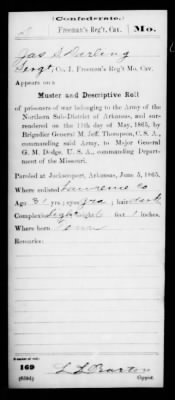 (Confederate.)
Freeman's Reg't, Cav. Mo.
Jas S Darling
Sergt, Co. I, Freeman's Reg't Mo. Cav.
Appears on a
Muster and Descriptive Roll
of prisoners of war belonging to the Army of the
Northern Sub-District of Arkansas, and sur-
rendered on the 11th day of May, 1865, by
Brigadier General M. Jeff Thompson, C. S. A.,
commanding said Army, to Major General
G. M. Dodge, U. S. A., commanding Depart-
ment of the Missouri.
Paroled at Jacksonport, Arkansas, June 5, 1865.
Where enlisted Lawrence Co
Age 31 yrs; eyes gra; hair dark
Complexion light; 6 feet 1 inches.
Where born Tenn
Remarks:
Number of roll:
169
(636d)
Copyist.